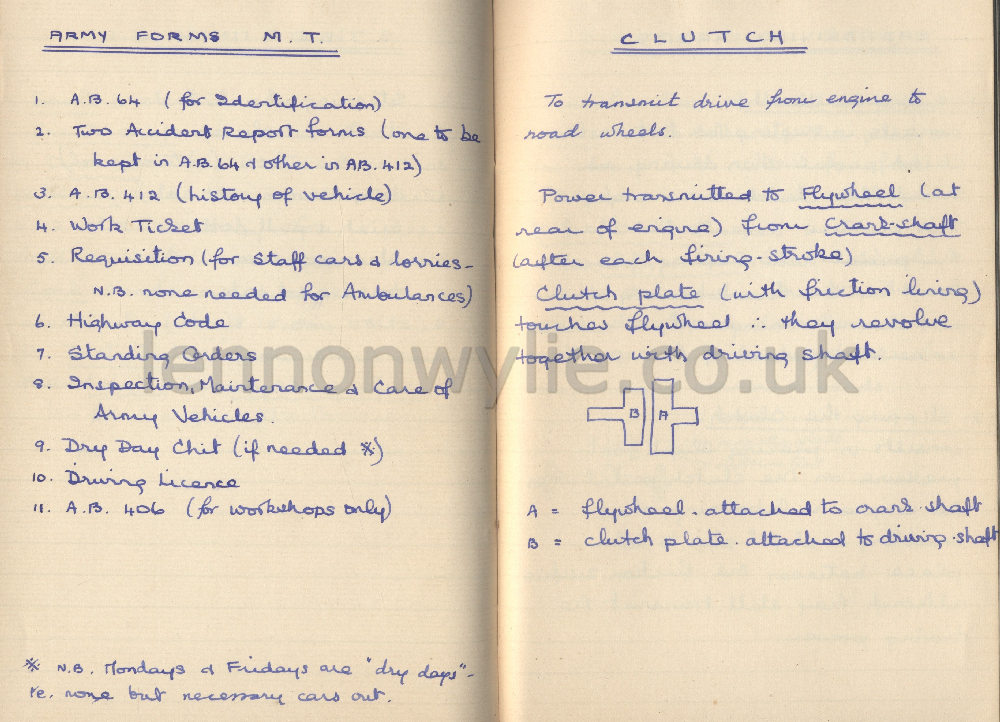 ARMY FORMS M.T.
1. A.B. 64 (for Identification)
2. Two Accident Report forms (one to be
kept in A.B. 64 & other in AB. 412)
3. A.B. 412 (history of vehicle)
4. Work Ticket
5. Requisition (for Staff cars & lorries -
N.B. none needed for Ambulances)
6. Highway Code
7. Standing Orders
8. Inspection, Maintenance & Care of
Army Vehicles.
9. Dry Day Chit (if needed *)
10. Driving Licence
11. A.B. 406 (for workshops only)
* N.B. Mondays & Fridays are "dry days" -
i.e. none but necessary cars out.
CLUTCH
To transmit drive from engine to
road wheels.
Power transmitted to Flywheel (at
rear of engine) from Crank-shaft
(after each firing-stroke)
Clutch plate (with friction lining)
touches flywheel ∴ they revolve
together with driving shaft.
B A
A = flywheel. attached to crank-shaft
B = clutch plate. attached to driving-shaft
lennonwylie.co.uk